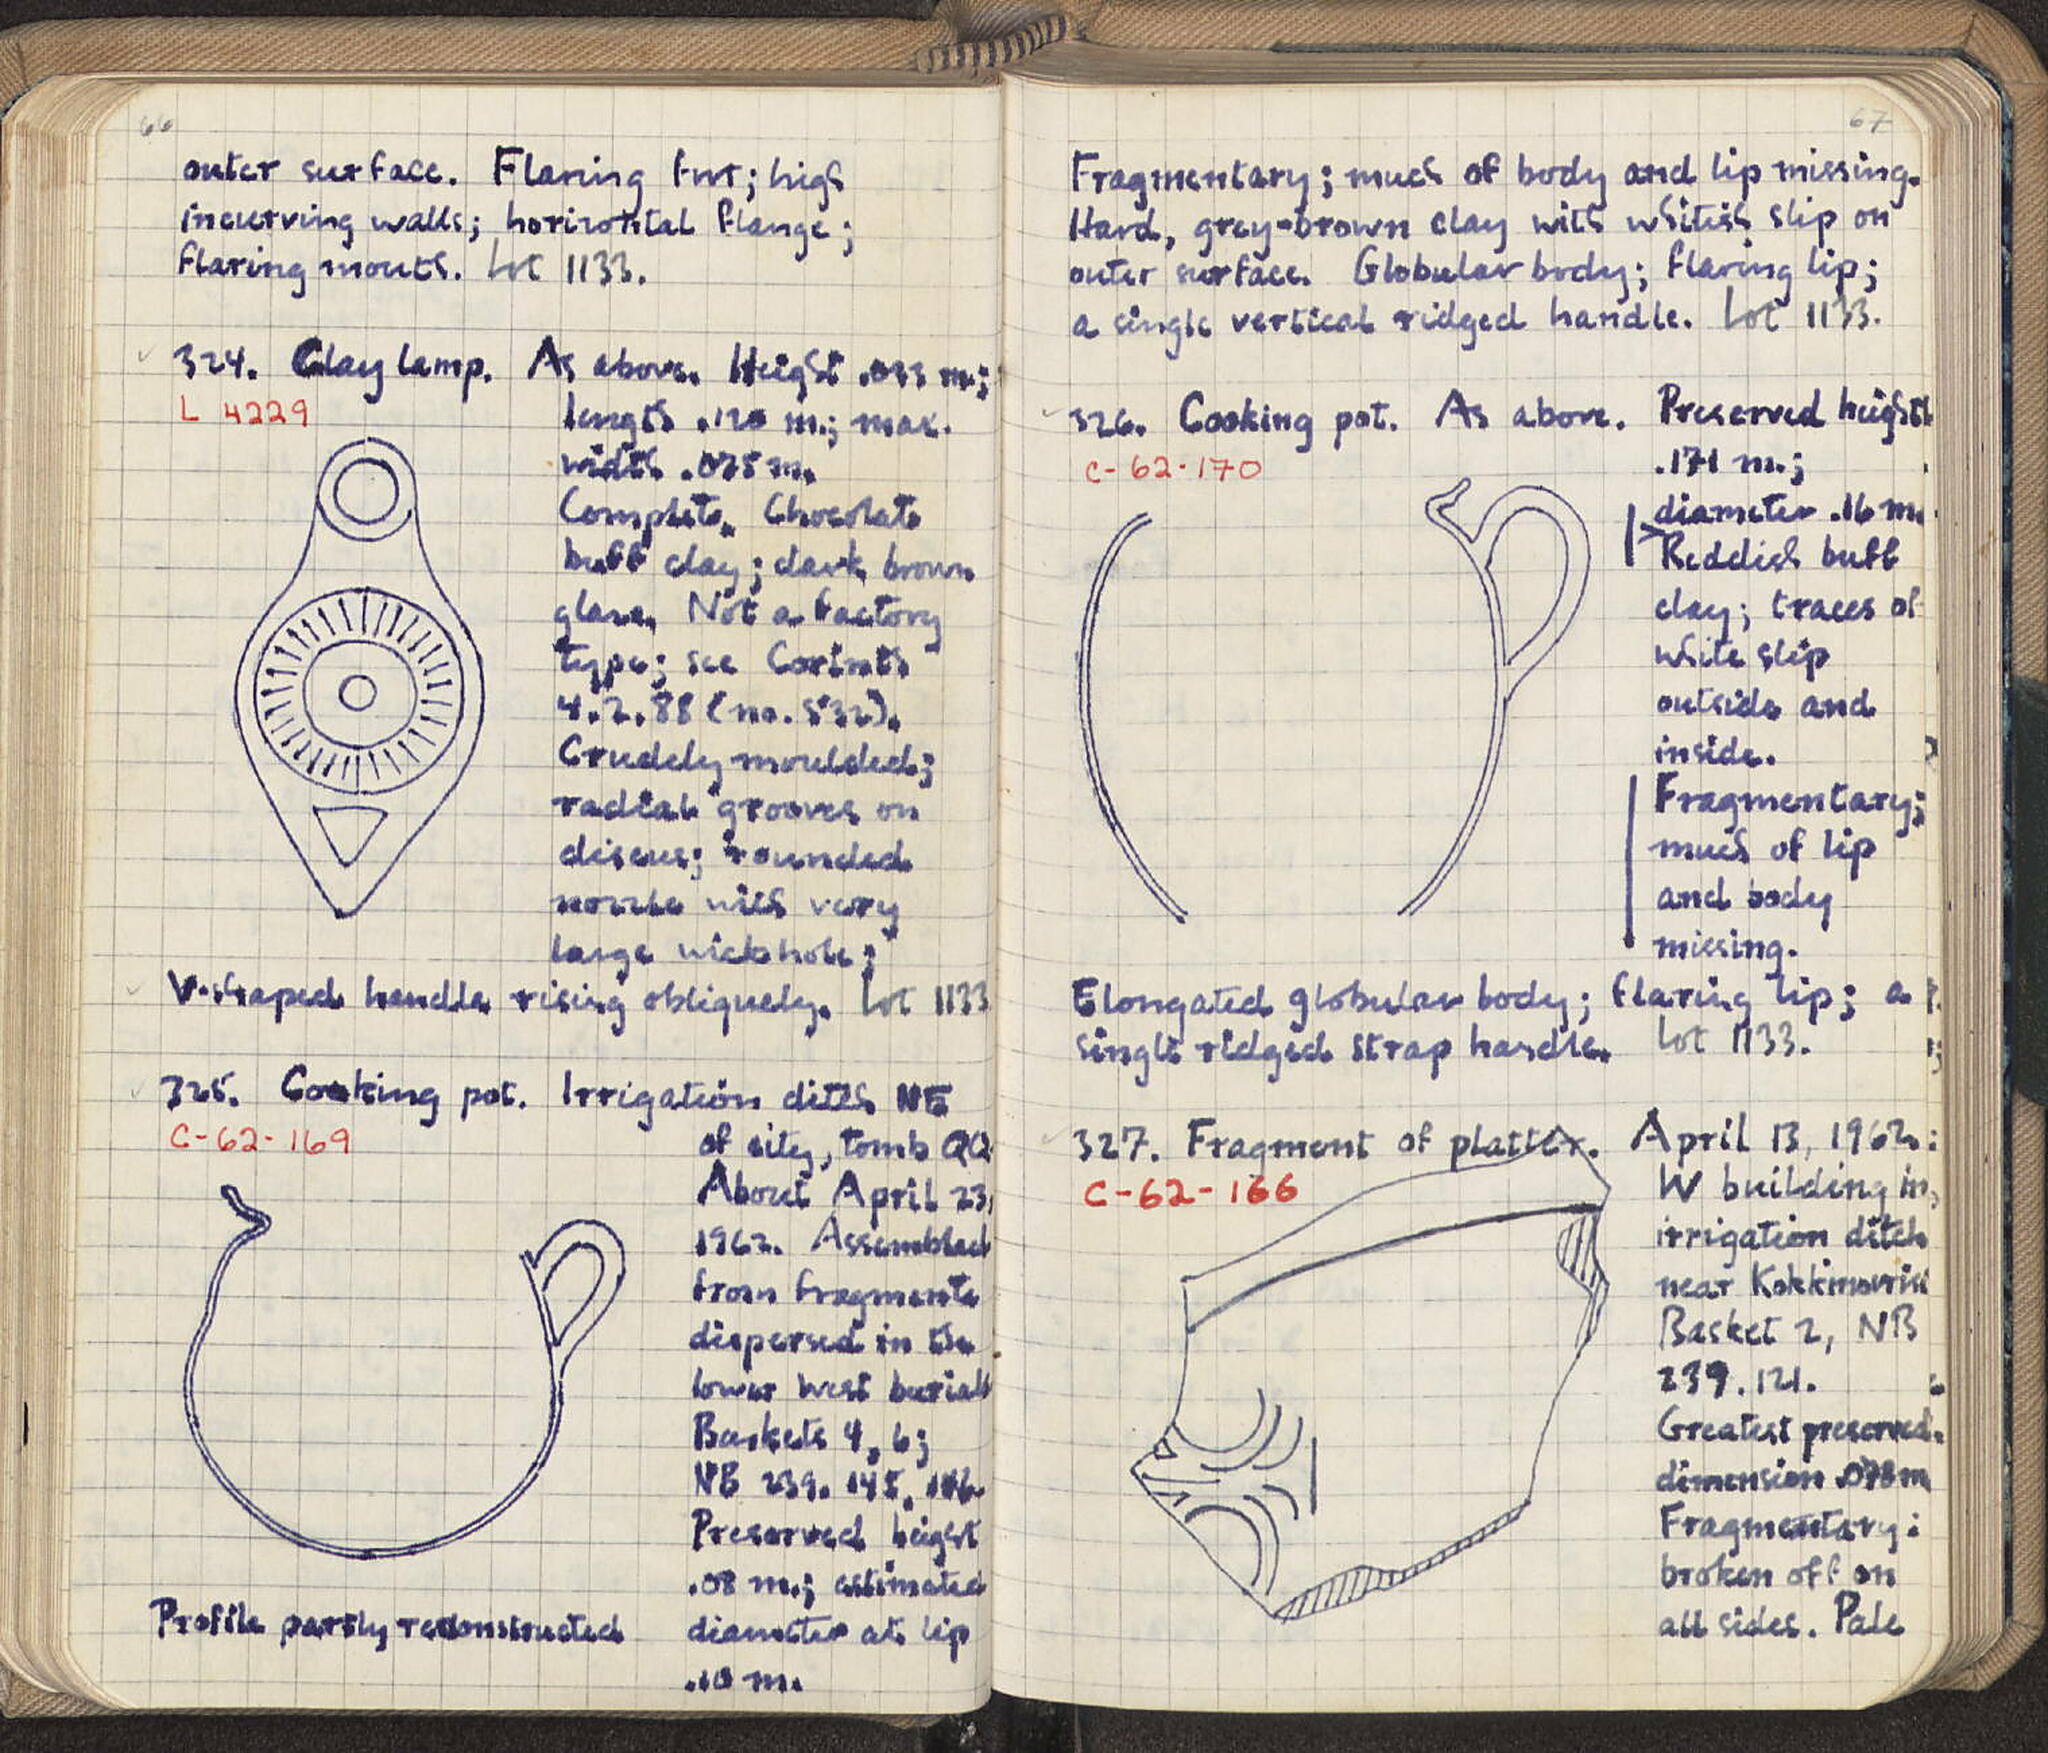 66
outer surface. Flaring foot; high
incurving walls; horizontal flange;
flaring mouth. Lot 1133.
324. Clay lamp. As above. Height .033 m.;
L 4229
length .120 m.; max.
width .075 m.
Complete. Chocolate
buff clay; dark brown
glaze. Not a factory
type; see Corinth
4.2.88 (no. 532).
Crudely moulded;
radial grooves on
discus; rounded
nozzle with very
large wickhole;
V-shaped handle rising obliquely. Lot 1133
325. Cooking pot. Irrigation ditch NE
C-62-169
of city, tomb QQ
About April 23,
1962. Assembled
from fragments
dispersed in the
lower west burial
Baskets 4, 6;
NB 239. 145, 146.
Preserved height
.08 m.; estimated
diameter at lip
.10 m.
Profile partly reconstructed
67
Fragmentary; much of body and lip missing.
Hard, grey-brown clay with whitish slip on
outer surface. Globular body; flaring lip;
a single vertical ridged handle. Lot 1133.
326. Cooking pot. As above. Preserved height
C-62-170
.171 m.;
diameter .16 m.
Reddish buff
clay; traces of
white slip
outside and
inside.
Fragmentary;
much of lip
and body
missing.
Elongated globular body; flaring lip; a
single ridged strap handle. Lot 1133.
327. Fragment of platter. April 13, 1962:
C-62-166
W building in
irrigation ditch
near
Basket 2, NB
239.121.
Greatest preserved
dimension .078 m
Fragmentary:
broken off on
all sides. Pale